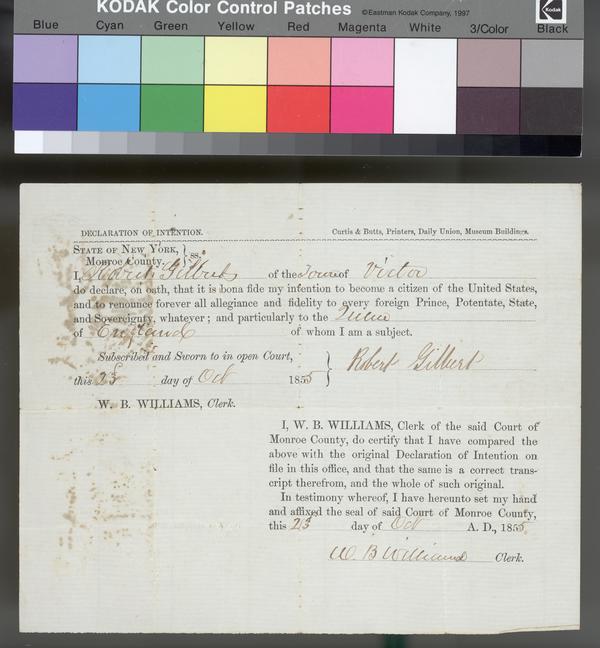 KODAK Color Control Patches ©Eastman Kodak Company, 1997 Kodak
Blue Cyan Green Yellow Red Magenta White 3/Color Black
DECLARATION OF INTENTION. Curtis & Butts, Printers, Daily Union, Museum Buildings.
STATE OF NEW YORK, } ss.
Monroe County.
I, Robert Gilbert of the Town of Victor
do declare, on oath, that it is bona fide my intention to become a citizen of the United States,
and to renounce forever all allegiance and fidelity to every foreign Prince, Potentate, State,
and Sovereignty, whatever ; and particularly to the Queen
of England of whom I am a subject.
Subscribed and Sworn to in open Court, } Robert Gilbert
this 23 day of Oct 1855
W. B. WILLIAMS, Clerk.
I, W. B. WILLIAMS, Clerk of the said Court of
Monroe County, do certify that I have compared the
above with the original Declaration of Intention on
file in this office, and that the same is a correct trans-
cript therefrom, and the whole of such original.
In testimony whereof, I have hereunto set my hand
and affixed the seal of said Court of Monroe County,
this 23 day of Oct A. D., 1855.
W. B Williams Clerk.